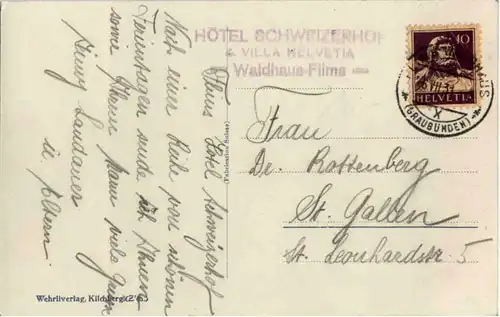 HÔTEL SCHWEIZERHOF
& VILLA HELVETIA
Waldhaus-Flims
10
HELVETIA
HAUS
(GRAUBÜNDEN)
Flims Hotel Schweizerhof
Nach einer Reihe von schönen
Ferientagen sende ich Ihnen
sowie Ihrem Mann viele Grüsse
Landauer
u. Eltern.
Frau
Dr. Rottenberg
St. Gallen
St. Leonhardstr 5
Wehrliverlag, Kilchberg (Zch)